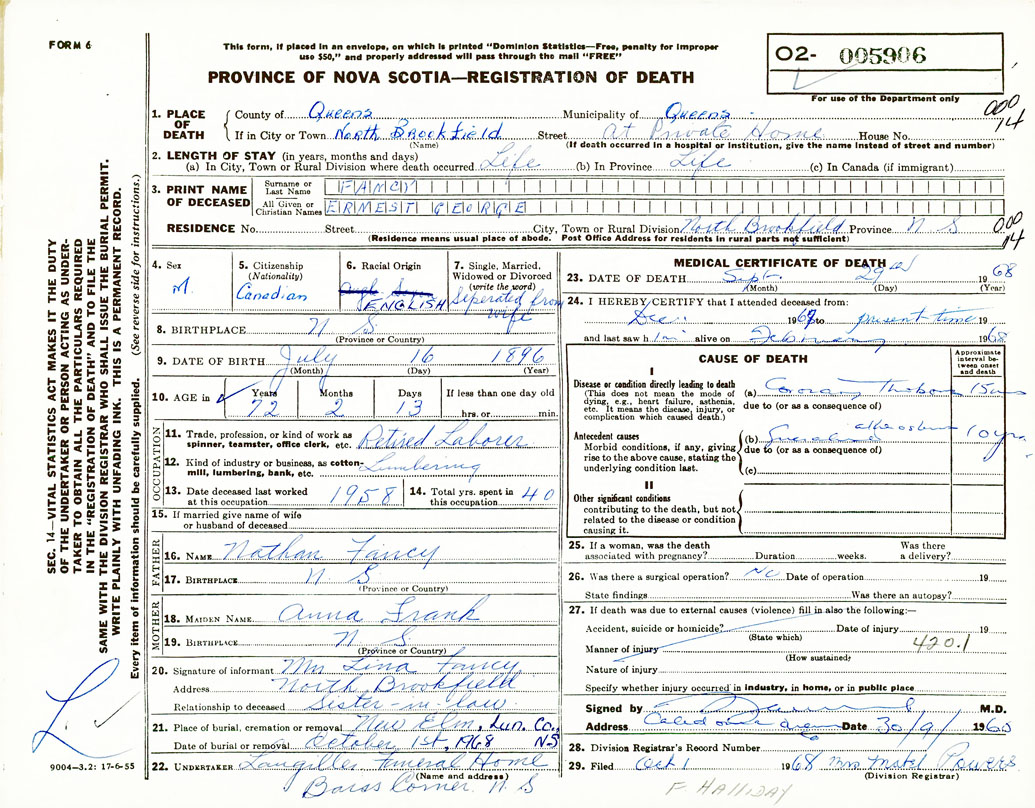 FORM 6
This form, if placed in an envelope, on which is printed "Dominion Statistics—Free, penalty for improper
use $50," and properly addressed will pass through the mail "FREE"
PROVINCE OF NOVA SCOTIA—REGISTRATION OF DEATH
O2- 005906
For use of the Department only
000
14
SEC. 14—VITAL STATISTICS ACT MAKES IT THE DUTY
OF THE UNDERTAKER OR PERSON ACTING AS UNDER-
TAKER TO OBTAIN ALL THE PARTICULARS REQUIRED
IN THE "REGISTRATION OF DEATH" AND TO FILE THE
SAME WITH THE DIVISION REGISTRAR WHO SHALL ISSUE THE BURIAL PERMIT.
WRITE PLAINLY WITH UNFADING INK. THIS IS A PERMANENT RECORD.
Every item of information should be carefully supplied. (See reverse side for instructions.)
9004—3.2: 17-6-55
1. PLACE OF DEATH
County of Queens Municipality of Queens
If in City or Town North Brookfield Street At Private Home House No.
(Name) (If death occurred in a hospital or Institution, give the name instead of street and number)
2. LENGTH OF STAY (in years, months and days)
(a) In City, Town or Rural Division where death occurred Life (b) In Province Life (c) In Canada (if immigrant)
3. PRINT NAME OF DECEASED
Surname or Last Name FANCY
All Given or Christian Names ERNEST GEORGE
RESIDENCE No. Street City, Town or Rural Division North Brookfield Province N S
(Residence means usual place of abode. Post Office Address for residents in rural parts not sufficient)
000
14
4. Sex M.
5. Citizenship (Nationality) Canadian
6. Racial Origin ENGLISH
7. Single, Married, Widowed or Divorced (write the word) Seperated from wife
8. BIRTHPLACE N S
(Province or Country)
9. DATE OF BIRTH July 16 1896
(Month) (Day) (Year)
10. AGE in Years 72 Months 2 Days 13 If less than one day
hrs. or min.
OCCUPATION
11. Trade, profession, or kind of work as
spinner, teamster, office clerk, etc. Retired Laborer
12. Kind of industry or business, as cotton-
mill, lumbering, bank, etc. Lumbering
13. Date deceased last worked
at this occupation 1958
14. Total yrs. spent in
this occupation 40
15. If married give name of wife
or husband of deceased
FATHER
16. NAME Nathan Fancy
17. BIRTHPLACE N S
(Province or Country)
MOTHER
18. MAIDEN NAME Anna Frank
19. BIRTHPLACE N S
(Province or Country)
20. Signature of informant Mrs Lina Fancy
Address North Brookfield
Relationship to deceased Sister-in-law
21. Place of burial, cremation or removal New Elm, Lun. Co.,
Date of burial or removal October 1st, 1968 NS
22. UNDERTAKER Langilles Funeral Home
(Name and address)
Barss Corner. N S
MEDICAL CERTIFICATE OF DEATH
23. DATE OF DEATH Sept. 29 1968
(Month) (Day) (Year)
24. I HEREBY CERTIFY that I attended deceased from:
Dec. 1967 to present time 19
and last saw him alive on February 1968
CAUSE OF DEATH
Approximate interval between onset and death
I
Disease or condition directly leading to death
(This does not mean the mode of
dying, e.g., heart failure, asthenia,
etc. It means the disease, injury, or
complication which caused death.)
(a) Coronary
due to (or as a consequence of)
Antecedent causes
Morbid conditions, if any, giving
rise to the above cause, stating the
underlying condition last.
(b) 10 yrs.
due to (or as a consequence of)
(c)
II
Other significant conditions
contributing to the death, but not
related to the disease or condition
causing it.
25. If a woman, was the death
associated with pregnancy? Duration weeks. Was there
a delivery?
26. Was there a surgical operation? No Date of operation 19
State findings Was there an autopsy?
27. If death was due to external causes (violence) fill in also the following:—
Accident, suicide or homicide? Date of injury 19
(State which)
Manner of injury 420.1
(How sustained)
Nature of injury
Specify whether injury occurred in industry, in home, or in public place
Signed by M.D.
Address Caledonia Date 30/9/ 1968
28. Division Registrar's Record Number
29. Filed Oct 1 1968 Mrs Mabel Powers
(Division Registrar)
F. HALLIDAY